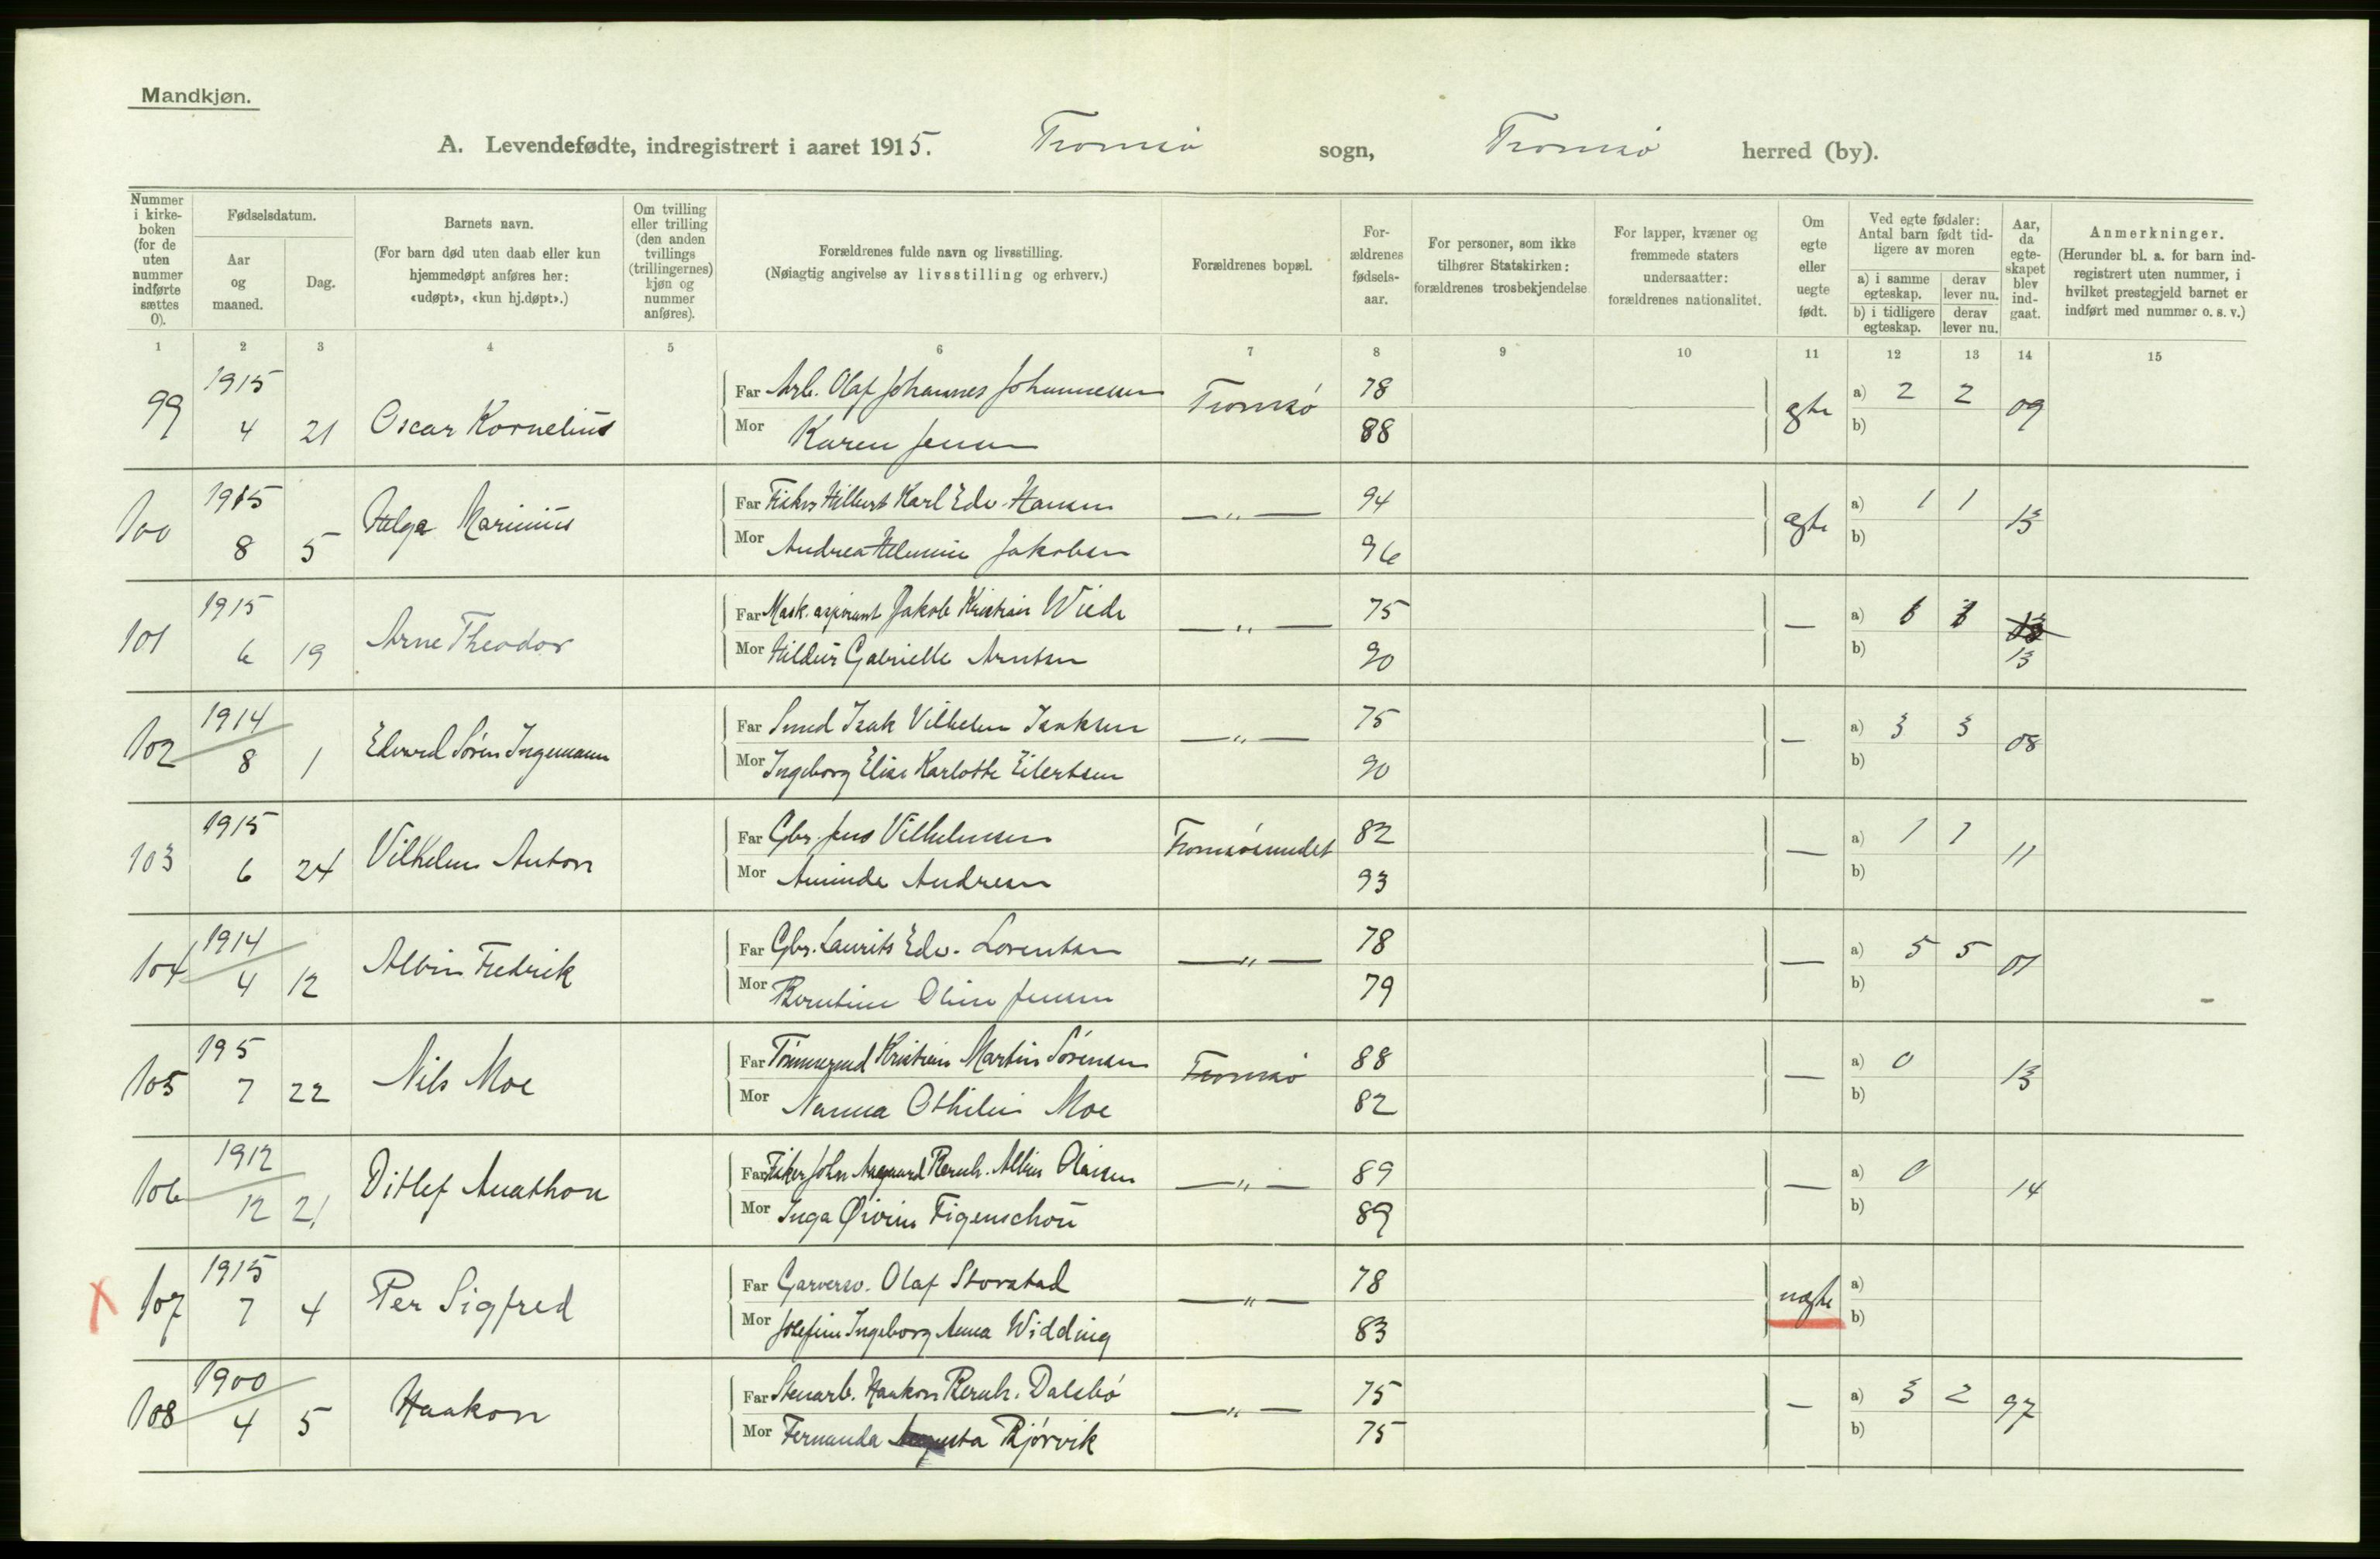 Mandkjøn.
A. Levendefødte, indregistrert i aaret 1915. Tromsø sogn, Tromsø herred (by).
Nummer i kirkeboken (for de uten nummer indførte sættes 0).
Fødselsdatum.
Aar og maaned.
Dag.
Barnets navn.
(For barn død uten daab eller kun hjemmedøpt anføres her: «udøpt», «kun hj.døpt».)
Om tvilling eller trilling (den anden tvillings (trillingernes) kjøn og nummer anføres).
Forældrenes fulde navn og livsstilling.
(Nøiagtig angivelse av livsstilling og erhverv.)
Forældrenes bopæl.
For-ældrenes fødsels-aar.
For personer, som ikke tilhører Statskirken: forældrenes trosbekjendelse
For lapper, kvæner og fremmede staters undersaatter: forældrenes nationalitet.
Om egte eller uegte født.
Ved egte fødsler: Antal barn født tid-ligere av moren
a) i samme egteskap.
derav lever nu.
b) i tidligere egteskap.
derav lever nu.
Aar, da egte-skapet blev ind-gaat.
Anmerkninger.
(Herunder bl. a. for barn ind-registrert uten nummer, i hvilket prestegjeld barnet er indført med nummer o. s. v.)
1 2 3 4 5 6 7 8 9 10 11 12 13 14 15
99 1915 4 21 Oscar Kornelius
Far Arb. Olaf Johannes Johannessen Tromsø 78 a) 2 2 09
Mor Karen Jensen 88 b)
100 1915 8 5 Helge Marinius
Far Fisker Hilbert Karl Edv. Hansen —„— 94 a) 1 1 13
Mor Andrea Helmine Jakobsen 96 b)
101 1915 6 19 Arne Theodor
Far Mask. aspirant Jakob Kristian Wiede —„— 75 — a) 13
Mor Hildur Gabrielle Arntsen 90 b)
102 1914 8 1 Edvard Søren Ingemann
Far Smed Isak Vilhelm Isaksen —„— 75 — a) 3 3 08
Mor Ingeborg Elise Karlotte Eilertsen 90 b)
103 1915 6 24 Vilhelm Anton
Far Gbr. Jens Vilhelmsen Tromsøsundet 82 — a) 1 1 11
Mor Aminda Andresen 93 b)
104 1914 4 12 Albin Fredrik
Far Gbr. Laurits Edv. Lorentsen —„— 78 — a) 5 5 01
Mor Berntine Oline Jensen 79 b)
105 195 7 22 Nils Moe
Far Tømmermd Kristian Martin Sørensen Tromsø 88 — a) 0 13
Mor Nanna Othilie Moe 82 b)
106 1912 12 21 Ditlef Anathon
Far Fisker John Aagaard Bernh. Albin Olaisen —„— 89 — a) 0 14
Mor Inga Øivine Figenschou 89 b)
X 107 1915 7 4 Per Sigfred
Far Garversv. Olaf Storstad —„— 78 uegte a)
Mor Josefine Ingeborg Anna Widding 83 b)
108 1900 4 5 Haakon
Far Stenarb. Haakon Bernh. Dalsbø —„— 75 — a) 3 2 97
Mor Fernanda Augusta Bjørvik 75 b)